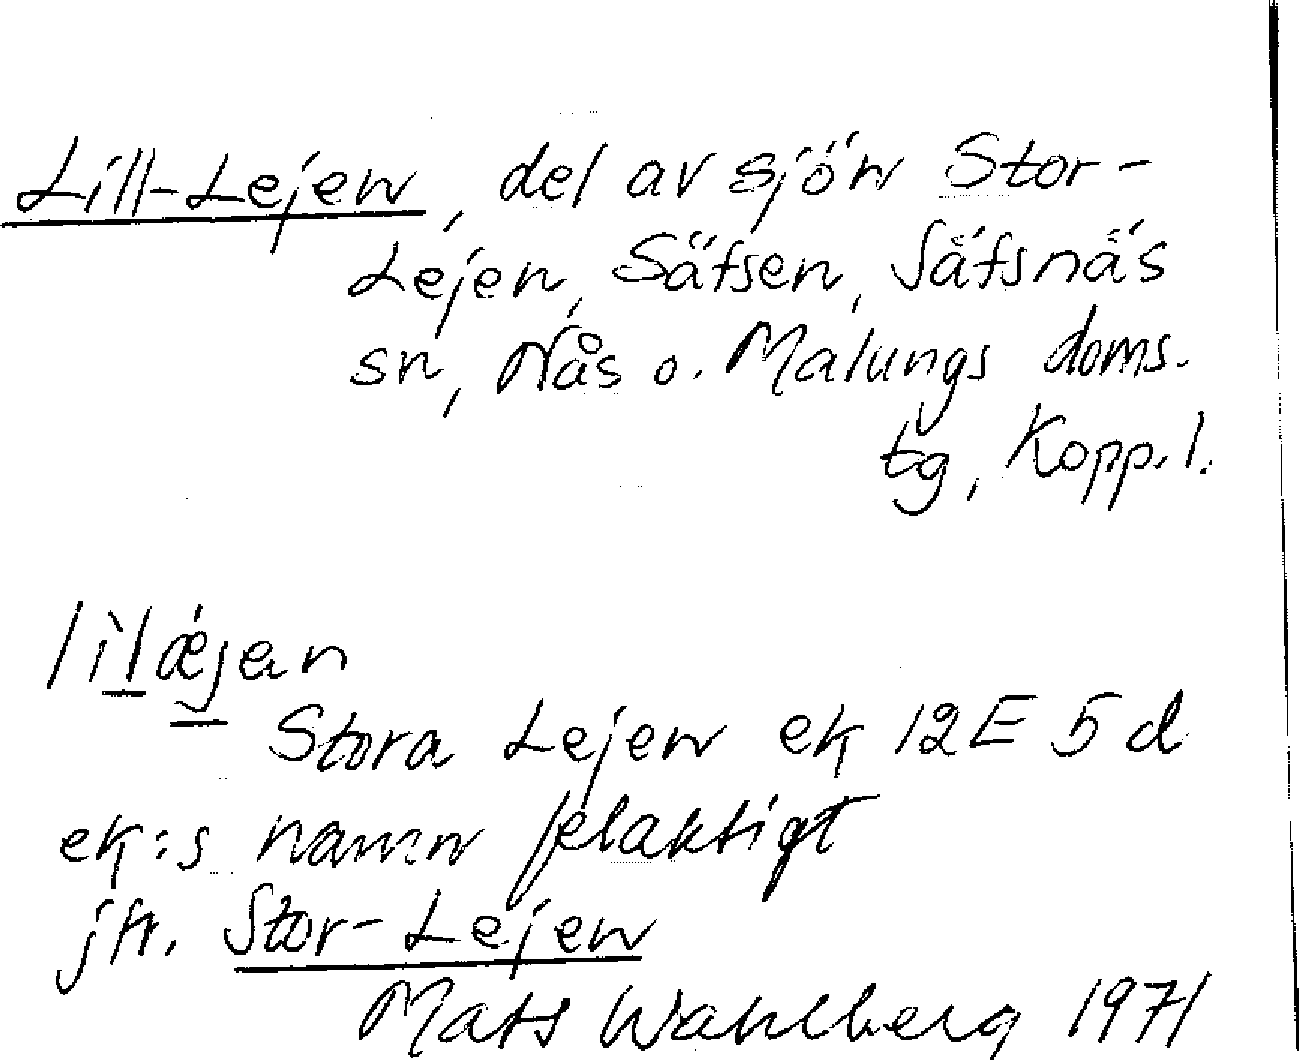 Lill-Lejen, del av sjön Stor-
Lejen, Säfsen, Säfsnäs
sn, Nås o. Malungs doms.
tg, Kopp. l.
Stora Lejen ek 12E 5d
ek:s namn felaktigt
jfr. Stor-Lejen
Mats Wahlberg 1971